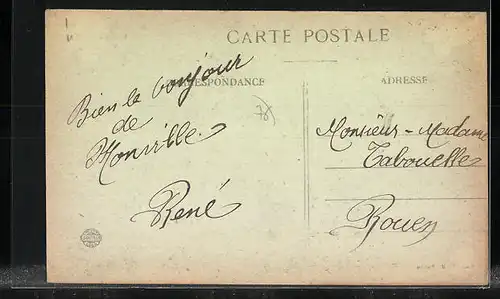 CARTE POSTALE
CORRESPONDANCE
ADRESSE
Bien le bonjour
de
Monville.
René
76
Monsieur - Madame
Tabouelle
Rouen